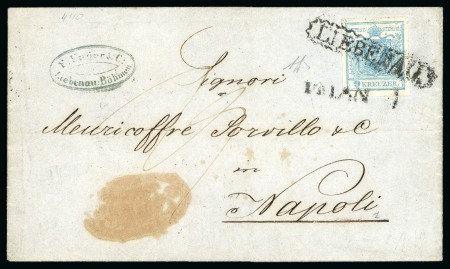 F. Unger & Co.
Liebenau, Böhmen
LIEBENAU
9 KREUZER
JAN
Signori
Meuricoffre Sorvillo & C
in
Napoli